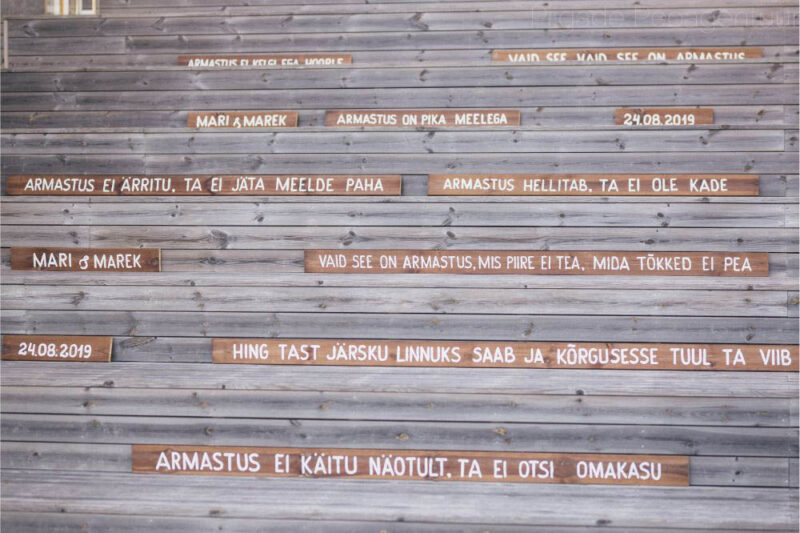 ARMASTUS EI KELGI EGA HOOPLE
VAID SEE, VAID SEE ON ARMASTUS
MARI & MAREK
ARMASTUS ON PIKA MEELEGA
24.08.2019
ARMASTUS EI ÄRRITU, TA EI JÄTA MEELDE PAHA
ARMASTUS HELLITAB, TA EI OLE KADE
MARI & MAREK
VAID SEE ON ARMASTUS, MIS PIIRE EI TEA, MIDA TÕKKED EI PEA
24.08.2019
HING TAST JÄRSKU LINNUKS SAAB JA KÕRGUSESSE TUUL TA VIIB
ARMASTUS EI KÄITU NÄOTULT, TA EI OTSI OMAKASU